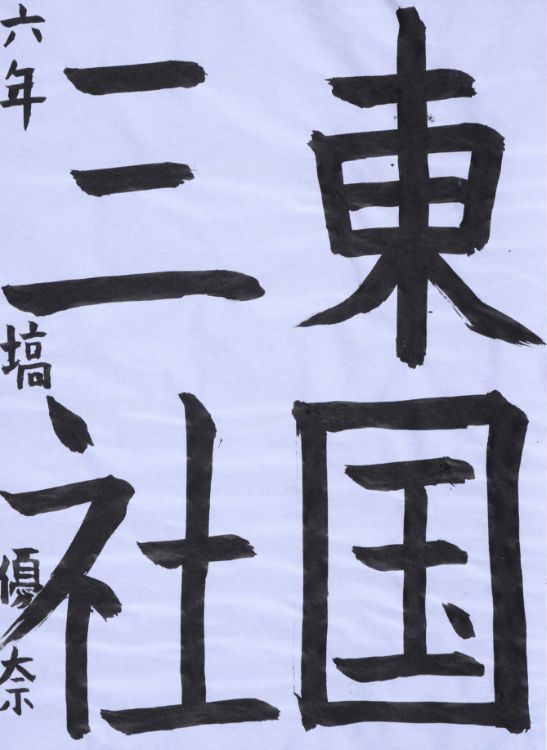 東国
三社
六年 塙 優奈